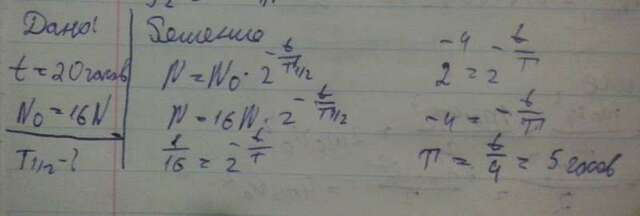 Дано:
t = 20 часов
N₀ = 16N
T1/2 - ?
Решение
N = N₀ · 2^(-t/T1/2)
N = 16N · 2^(-t/T1/2)
1/16 = 2^(-t/T)
2^(-4) = 2^(-t/T)
-4 = -t/T
T = t/4 = 5 часов